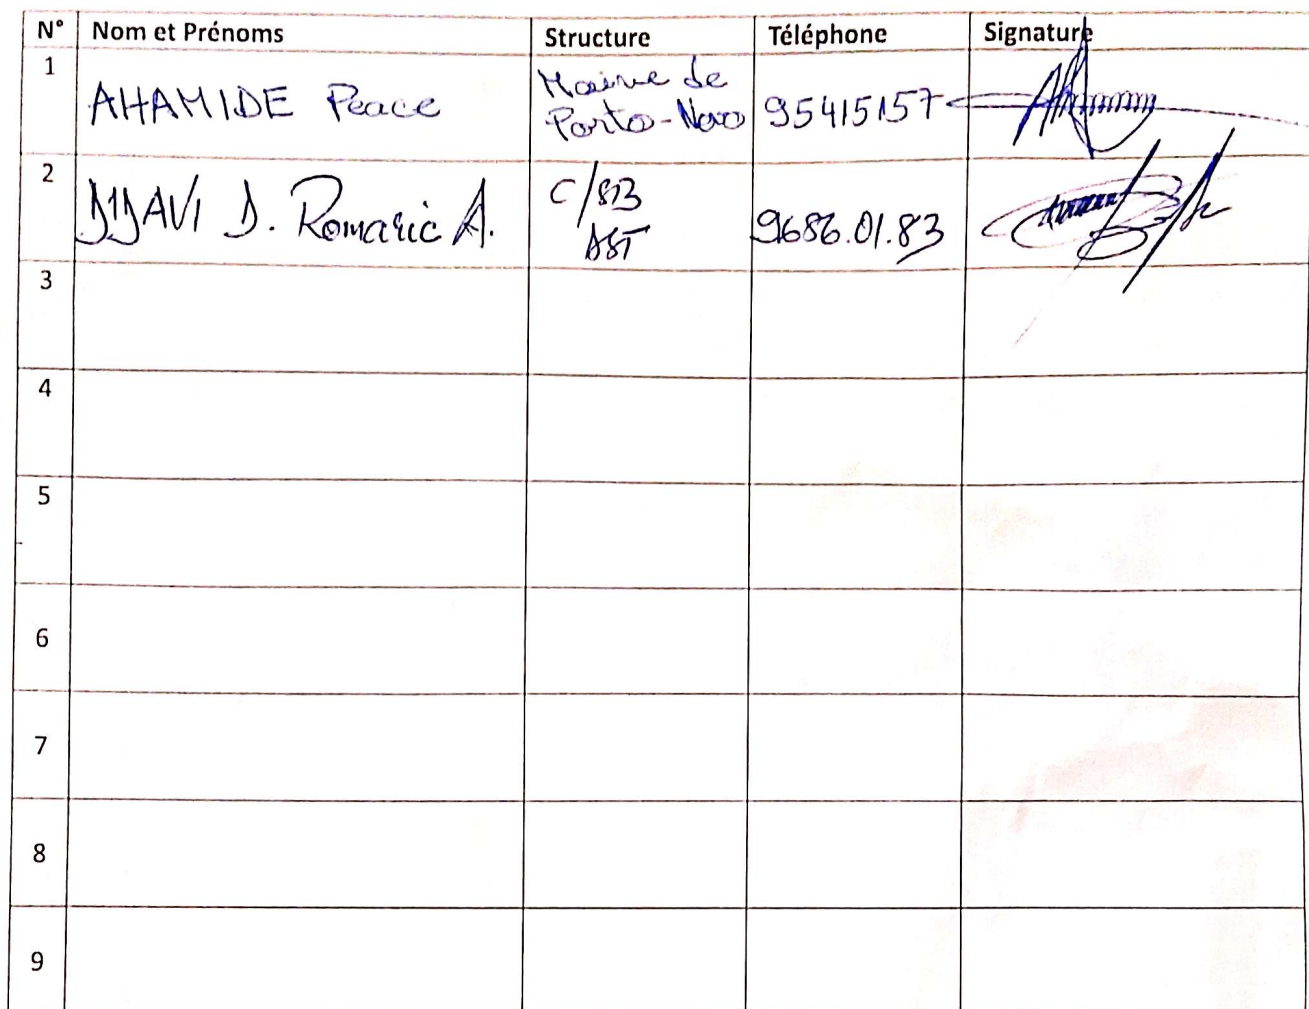 N° Nom et Prénoms Structure Téléphone Signature
1 AHAMIDE Peace Mairie de Porto-Novo 95415157
2 DJAVI D. Romaric A. C/STB AST 9686.01.83
3
4
5
6
7
8
9